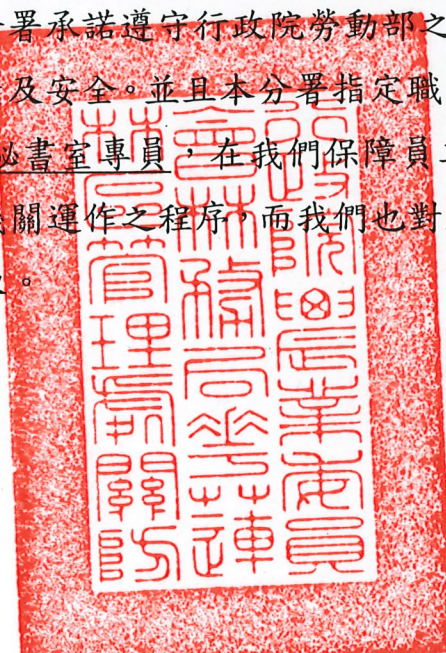 署承諾遵守行政院勞動部之
及安全。並且本分署指定職
秘書室專員，在我們保障員
機關運作之程序，而我們也對
。
行政院農業委員
會林務局花蓮
林區管理處關防